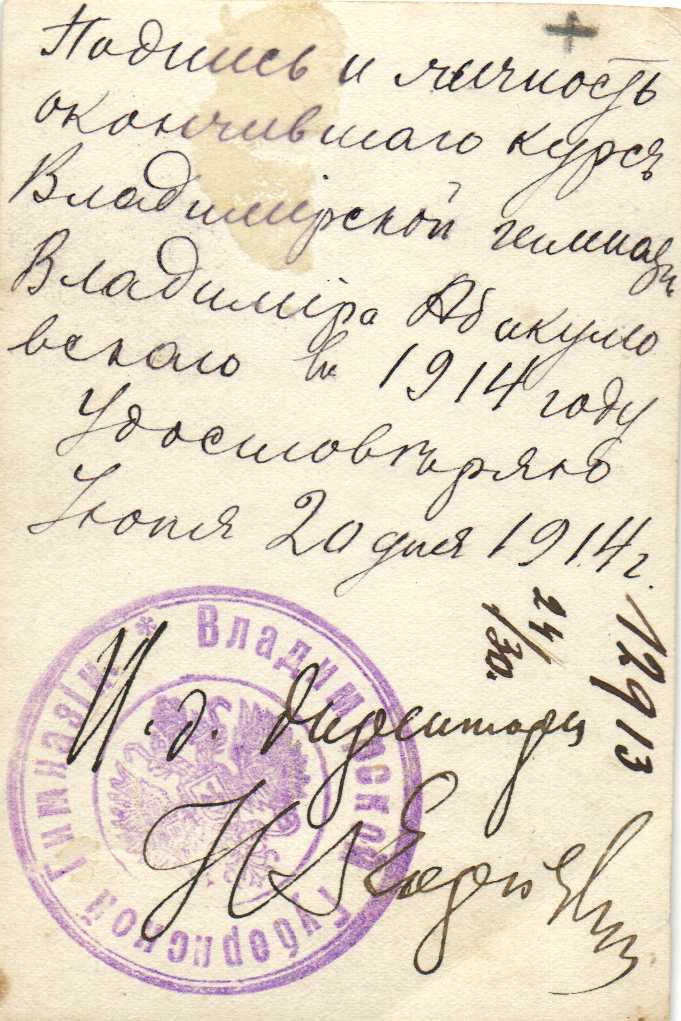 Подпись и личность
окончившаго курсъ
Владимірской гимназіи
Владиміра Абакумо
вскаго въ 1914 году
Удостовѣряю
Іюня 20 дня 1914 г.
24/30.
12913
И. д. Директора
* Владимірской Губернской Гимназіи